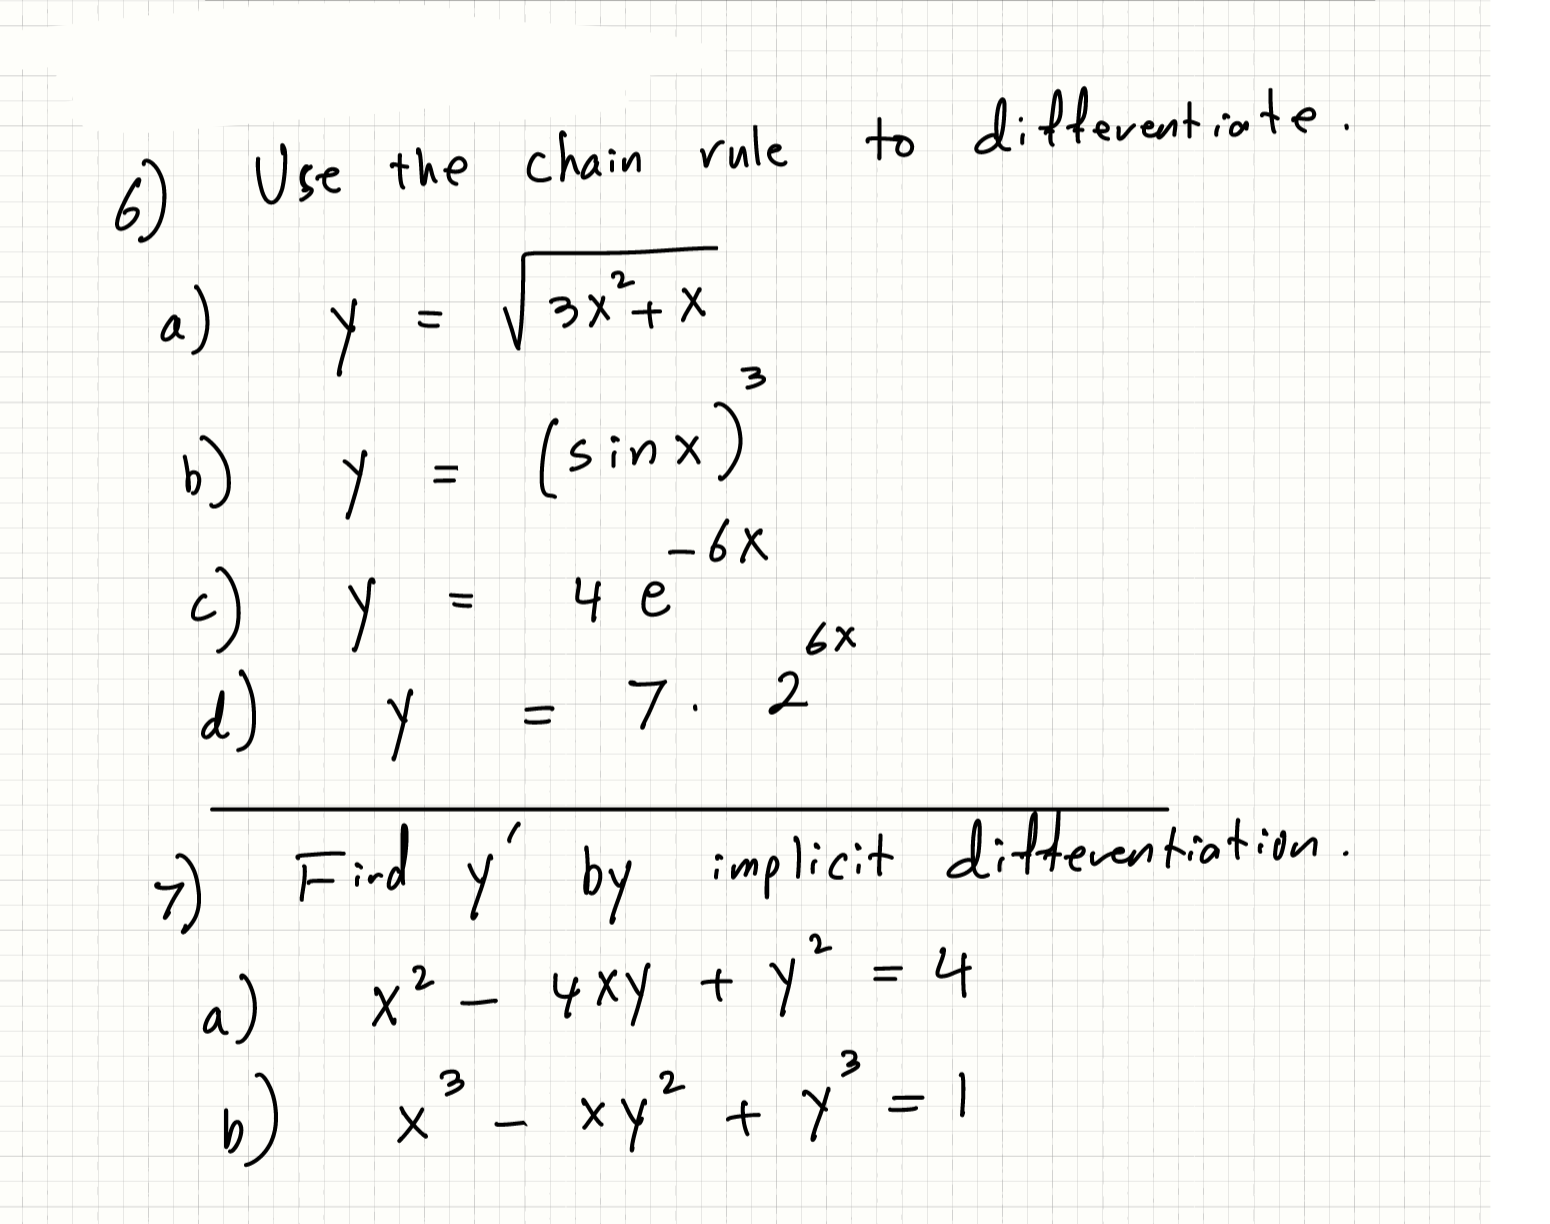 6) Use the chain rule to differentiate.
a) y = √(3x² + x)
b) y = (sin x)³
c) y = 4 e^(-6x)
d) y = 7 · 2^(6x)
7) Find y′ by implicit differentiation.
a) x² - 4xy + y² = 4
b) x³ - xy² + y³ = 1